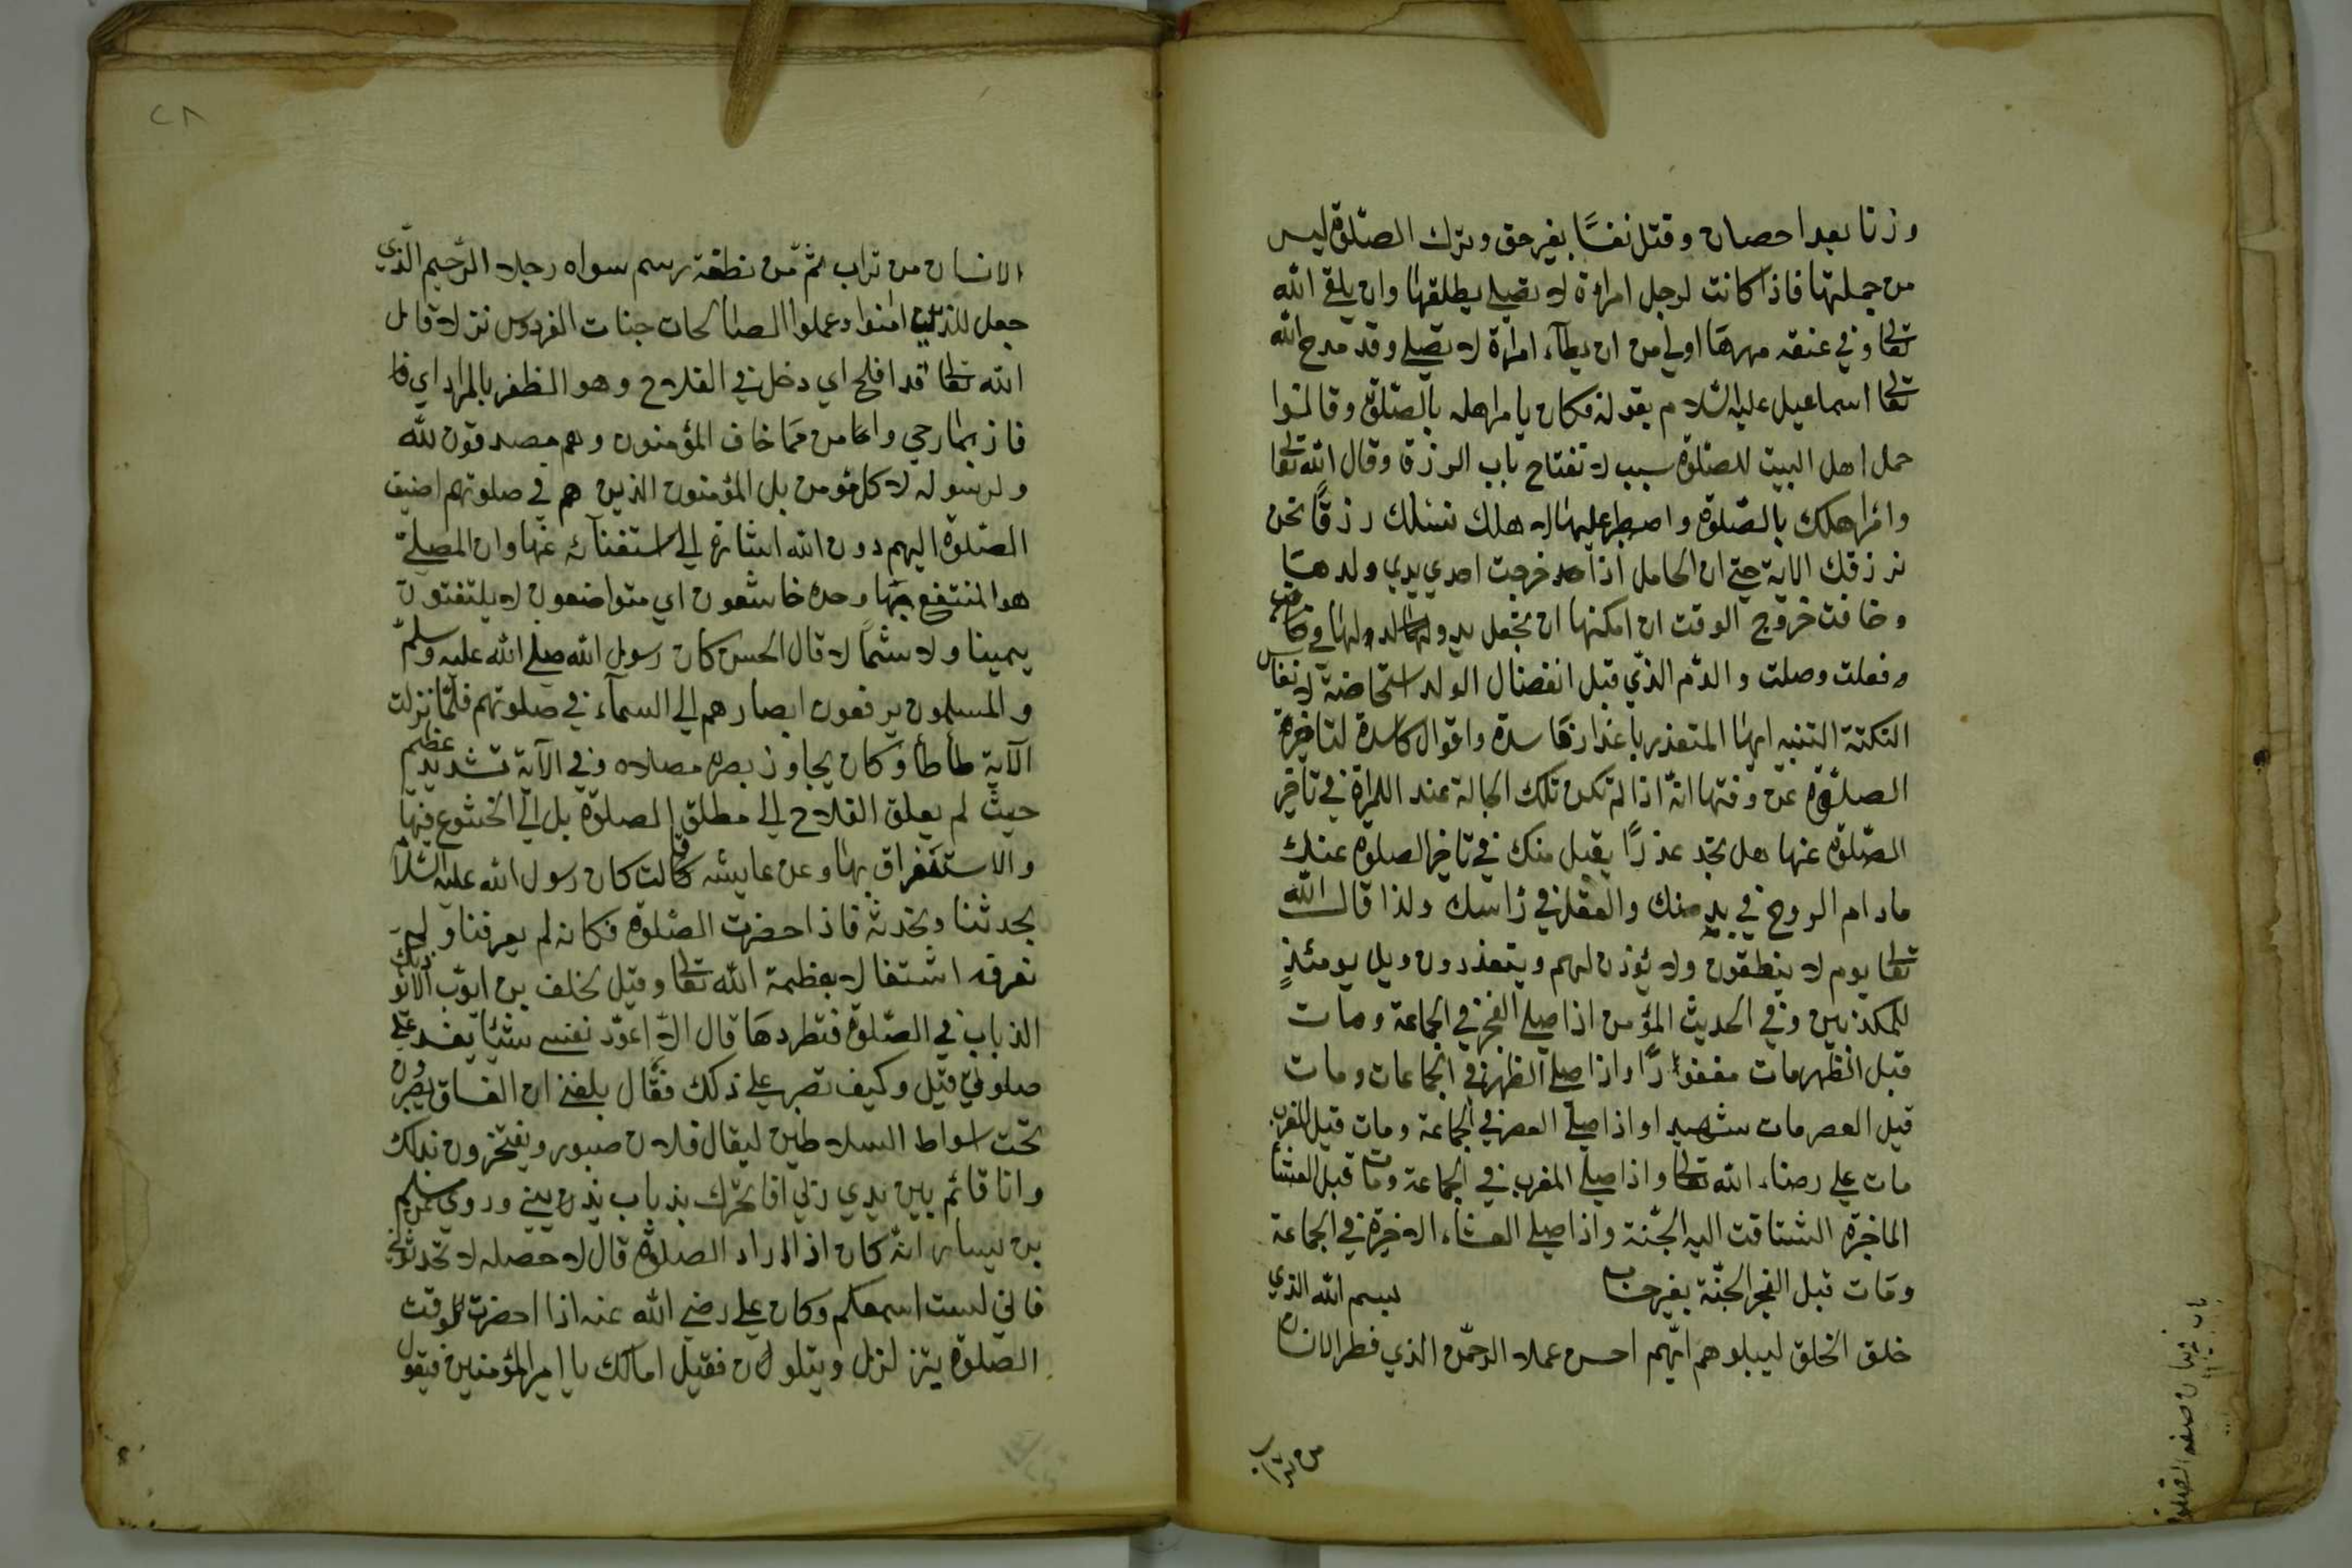 وزنا بعد احصان وقتل نفسًا بغير حق وترك الصّلوة ليس
من جملتها فاذا كانت لرجل امراة لا تصلي يطلقها وان يلقي الله
تعالى وفي عنقه مهرها اولي من ان يطآء امراة لا تصلي وقد مدح الله
تعالى اسماعيل عليه السّلام بقوله فكان يامر اهله بالصّلوة وقالنوا
حمل اهل البيت للصّلوة سبب لا تفتاح باب الرزق وقال الله تعالى
وامر اهلك بالصّلوة واصطبر عليها لا هلك نسئلك رزقًا نحن
نرزقك الاية حتي ان الحامل اذا خرجت احدي يدي ولدها
وخافت خروج الوقت ان امكنها ان تجعل يد ولدها
وفعلت وصلت والدّم الذّي قبل انفصال الولد استحاضة لا نفاس
النكتة التنبه ايها المتعذر باعذار فاسدة واقوال كاسدة لتاخيرة
الصلوة عن وقتها انّه اذا لم تكن تلك الحالة عند اللمراة في تاخير
الصّلوة عنها هل تجد عذرًا يقبل منك في تاخير الصلوة عنك
مادام الروح في بدنك والعقل في راسك ولذا قال الله
تعالى يوم لا ينطقون ولا يؤذن لهم ويتعذرون ويل يومئذٍ
للمكذبين وفي الحديث المؤمن اذا صلي الفجر في الجماعة ومات
قبل الظهر مات مغفورًا واذا صلي الظهر في الجماعات ومات
قبل العصر مات شهيدا واذا صلي العصر في الجماعة ومات قبل المغرب
مات علي رضاء الله تعالى واذا صلي المغرب في الجماعة ومات قبل العشا
الماخرة اشتاقت اليه الجّنة واذا صلي العشاء الاخيرة في الجماعة
ومات قبل الفجر الجنّة بغير حساب بسم الله الذي
خلق الخلق ليبلوهم ايّهم احسن عملا الرحمن الذي فطر الانسان
من تراب
باب في بيان صفة الصّلوة
٢٨
الانسان من تراب ثمّ من نطفة ثم سواه رجلا الرّحيم الّذي
جعل للذين امنوا وعملوا الصالحات جنات الفردوس نزلا قال
الله تعالى قد افلح اي دخل في الفلاح وهو الظفر بالمراد اي قا
فاز بما رجي وامن ممّا خاف المؤمنون وهم مصدقون لله
ولرسوله لا كل مؤمن بل المؤمنون الذين هم في صلوتهم اضيف
الصّلوة اليهم دون الله اشارة الي استغنآئه عنها وان المصلي
هو المنتفع بها وحده خاشعون اي متواضعون لا يلتفتون
يمينا ولا شمالا قال الحسن كان رسول الله صلي الله عليه وسلم
والمسلمون يرفعون ابصارهم الي السمآء في صلوتهم فلمّا نزلت
الآية طأطأ وكان لا يجاوز بصره مصلاه وفي الآية تشديد عظيم
حيث لم يعلق الفلاح الي مطلق الصلوة بل الي الخشوع فيها
والاستغراق بها وعن عايشه قالت كان رسول الله عليه السّلام
يحدثنا ونحدثه فاذا حضرت الصّلوة فكانه لم يعرفنا ولم
نعرفه اشتغالا بعظمة الله تعالى وقيل لخلف بن ايّوب الا يؤذيك
الذباب في الصّلوة فتطردها قال لا اعوّد نفسي شيئا يفسد علي
صلوتي قيل وكيف تصبر علي ذلك فقال بلغني ان الفساق يصبرون
تحت اسواط السلاطين ليقال فلان صبور ويفتخرون بذلك
وانا قائم بين يدي ربّي افاتحرّك بذباب وروي عن مسلم
بن يسار انّه كان اذا اراد الصلوة قال لا
فاني لست اسمعكم وكان علي رضي الله عنه اذا احضرت للوقت
الصّلوة يتزلزل ويتلون فقيل امالك يا امير المؤمنين فيقول